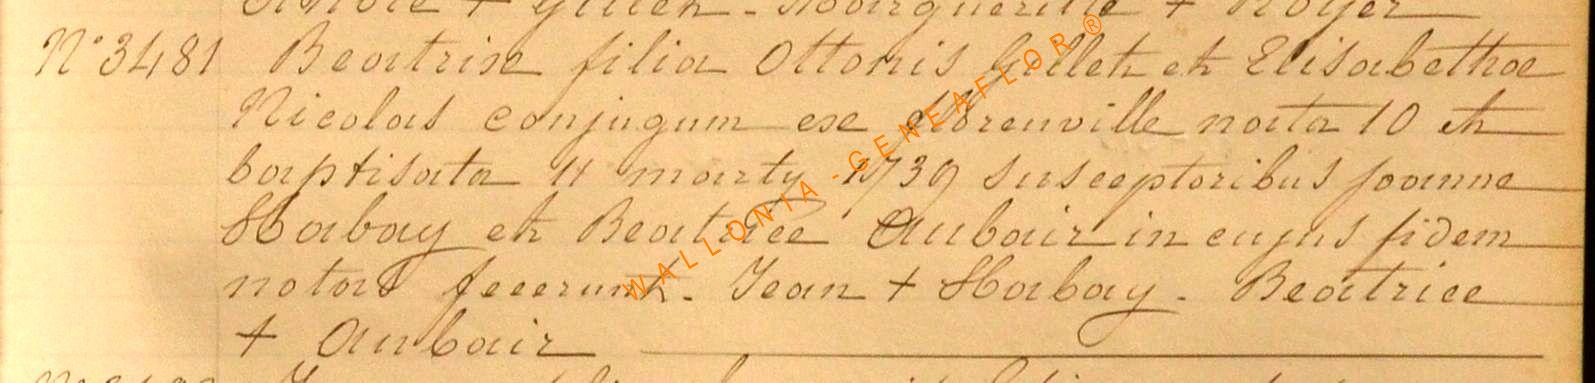 + Gillet - Margueritte + Royer
N° 3481 Beatrix filia Ottonis Gillet et Elisabethae
Nicolas conjugum ex Morenville nata 10 et
baptisata 11 marty 1739 susceptoribus Joanne
Habay et Beatrice Aubair in cujus fidem
notas fecerunt - Jean + Habay - Beatrice
+ Aubair
WALLONIA - GENEAFLOR ®